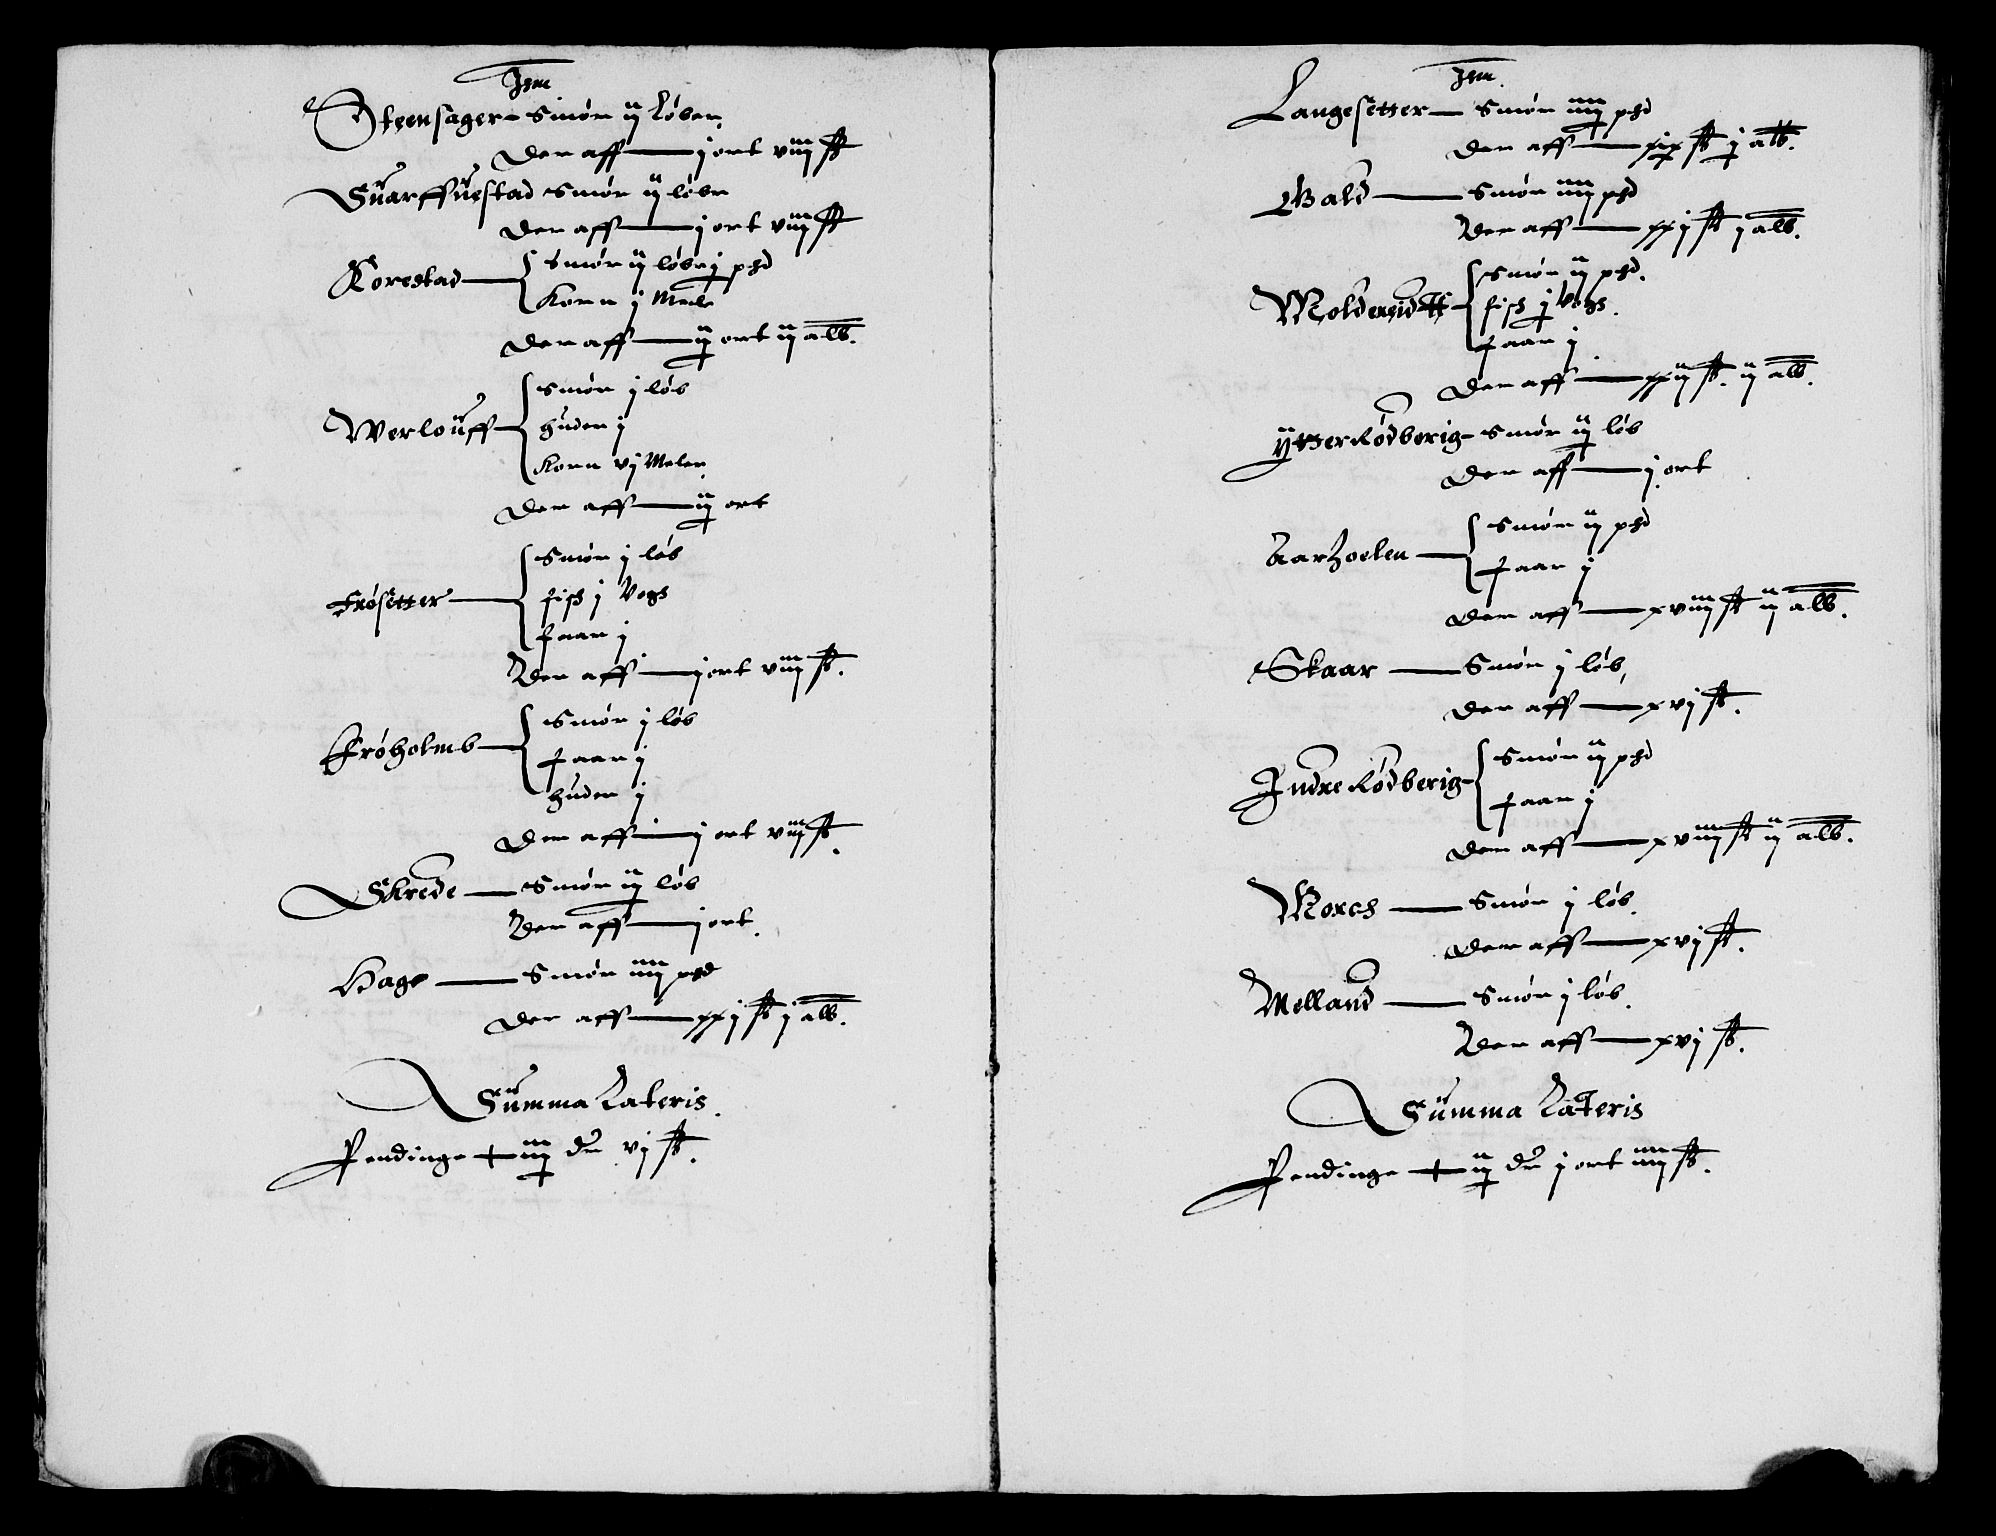 Item
Steensager — Smör ij Löber
Der aff — j ort viij ß
Suarffuestad Smör ij löbr
Der aff — j ort viij ß
Korestad — Smör ij löbr j pd
Korn j Mele
Der aff — ij ort ij alb.
Werlouff — Smör j löb
huder j
Korn vj Meler
Der aff — ij ort
Frösetter — Smör j löb
fisk j Vogh
Faar j
Der aff — j ort viij ß.
Fröholmb — Smör j löb
Faar j
huder j
Der aff — j ort viij ß.
Skrede — Smör ij löb
Der aff — j ort.
Hage — Smör iiij pd
Der aff — xxj ß j alb.
Summa Lateris.
Pendinge — iij dr vj ß.
Item
Langesetter — Smör iiij pd
Der aff — xix ß j alb.
Wald — Smör iiij pd
Der aff — xxj ß j alb.
Moldereidtt — Smör ij pd.
fisk j Vogh.
Faar j
Der aff — xxij ß. ij alb.
ÿtter Rödberig — Smör ij löb
Der aff — j ort
Aarhoelen — Smör ij pd
Faar j
Der aff — xviij ß ij alb.
Skaar — Smör j löb,
Der aff — xvj ß.
Indre Rödberig — Smör ij pd
Faar j
Der aff — xviij ß ij alb.
Morch — Smör j löb.
Der aff — xvj ß.
Melland — Smör j löb.
Der aff — xvj ß.
Summa Lateris
Pendinge — ij dr j ort iiij ß.